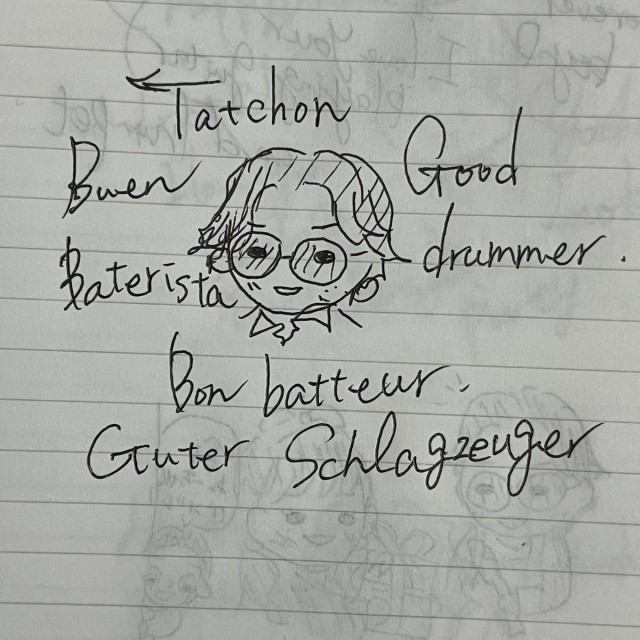 Tatchon
Buen
Baterista
Good
drummer.
Bon batteur.
Guter Schlagzeuger